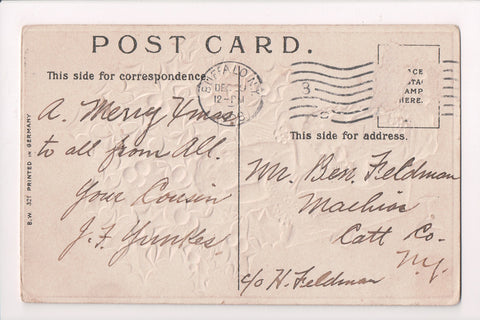 POST CARD.
This side for correspondence.
BUFFALO, N.Y.
DEC
12-PM
8
PLACE
STAMP
HERE.
This side for address.
B.W. 321 PRINTED IN GERMANY
A. Merry Xmas
to all from All.
Your Cousin
J. F. Yunkes.
Mr. Ben. Feldman
Machias
Catt Co.
N.Y.
c/o H. Feldman